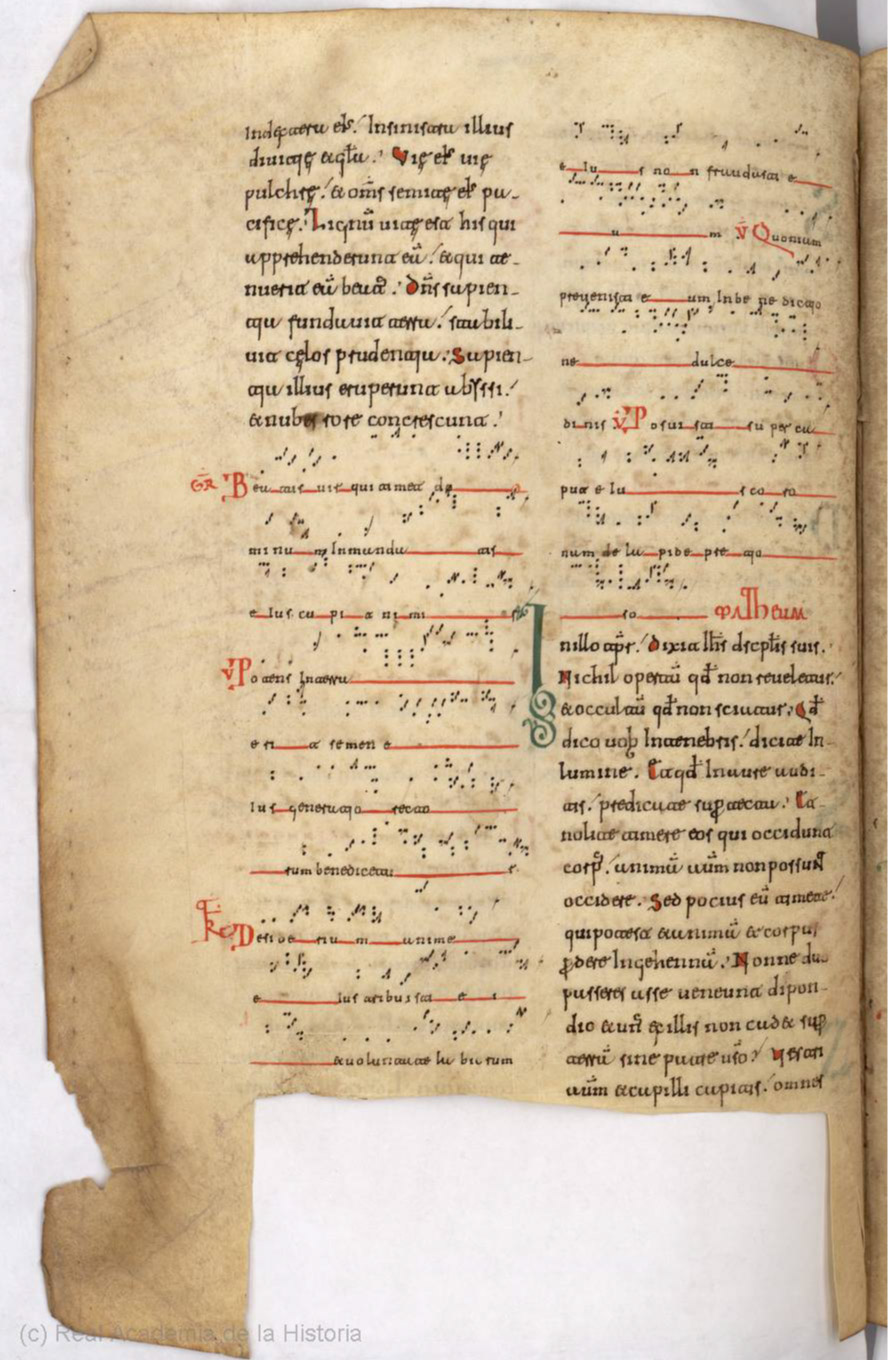 In dext̄ra ei᷒. In sinistra illius
diuitię & gl̄a. Vię ei᷒ uię
pulchrę. & om̄s semitę ei᷒ pa-
cificę. Lignū uitę est his qui
apprehenderunt eā. & qui te-
nuerit eā beat᷒. Dn̄s sapien-
tia fundauit terra. stabili-
uit cęlos prudentia. Sapien-
tia illius eruperunt abyssi.
& nubes rore concrescunt.
GR Beatus uir qui timet do
minum In mandatis
eius cupit nimis
V̄ Potens In terra
erit semen e
ius generatio recto
rum benedicetur
Desiderium anime
eius tribuisti ei
& uoluntate labiorum
eius non fraudasti e
um V̄ Quoniam
preuenisti eum In benedictio
ne dulce
dinis V̄ Posuisti super ca
put eius coro
nam de lapide pretio
so MATHEUM
In illo tp̄r. Dixit ih̄s discip̄lis suis.
Nichil opertū qd̄ non reueletur.
& occultū qd̄ non sciatur. Qd̄
dico uob̄ In tenebris. dicite In
lumine. Et qd̄ In aure audi-
tis. predicate sup̄ tecta. Et
nolite timere eos qui occidunt
corp᷒. animā aūm non possunt
occidere. Sed pocius eū timete.
qui potest & animā & corpus
ꝑdere In gehennā. Nonne duo
passeres asse ueneunt dipon-
dio & un᷒ ex illis non cadet sup̄
terrā sine patre ur̄o. Vestri
aūm & capilli capitis. omnes
(c) Real Academia de la Historia